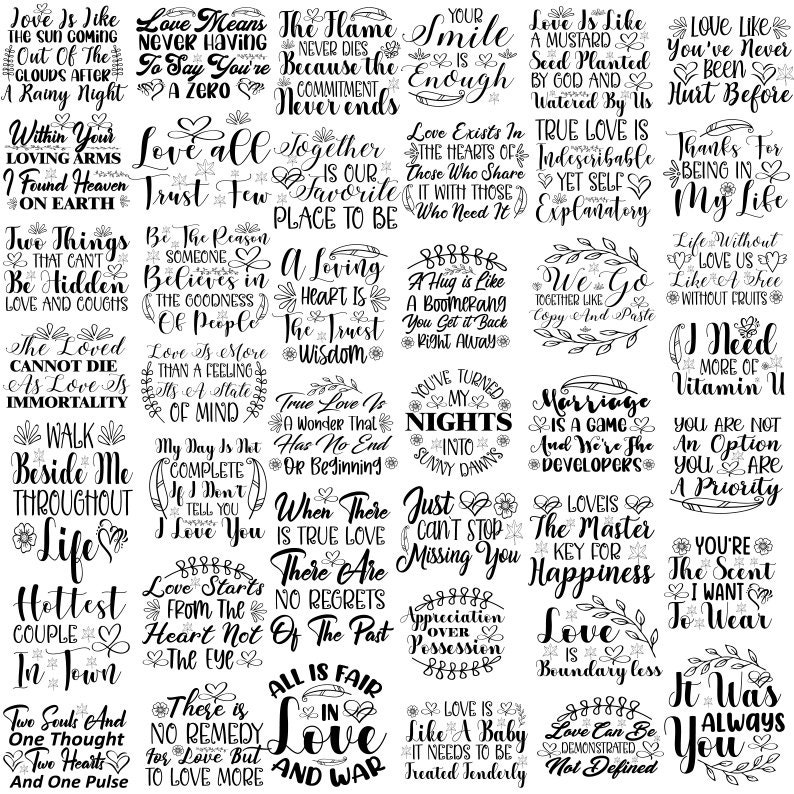 Love Is Like
THE SUN COMING
Out Of The
CLOUDS AFTER
A Rainy Night
Love Means
Never Having
To Say You're
A ZERO
The Flame
NEVER DIES
Because the
COMMITMENT
Never ends
YOUR
Smile
IS
Enough
Love Is Like
A MUSTARD
Seed Planted
BY GOD AND
Watered By Us
Love Like
You've Never
BEEN
Hurt Before
Within Your
LOVING ARMS
I Found Heaven
ON EARTH
Love all
Trust Few
Together
IS OUR
Favorite
PLACE TO BE
Love Exists In
THE HEARTS OF
Those Who Share
IT WITH THOSE
Who Need It
TRUE LOVE IS
Indescribable
YET SELF
Explanatory
Thanks For
BEING IN
My Life
Two Things
THAT CAN'T
Be Hidden
LOVE AND COUGHS
Be The Reason
SOMEONE
Believes in
THE GOODNESS
Of People
A Loving
HEART IS
The Truest
Wisdom
A Hug is Like
A Boomerang
You Get it Back
Right Away
We Go
TOGETHER LIKE
Copy And Paste
Life Without
LOVE US
Like A Tree
WITHOUT FRUITS
The Loved
CANNOT DIE
As Love Is
IMMORTALITY
Love Is More
THAN A FEELING
Its A State
OF MIND
True Love Is
A Wonder That
Has No End
Or Beginning
YOU'VE TURNED
MY
NIGHTS
INTO
SUNNY DAWNS
Marriage
IS A GAME
And We're The
DEVELOPERS
I Need
MORE OF
Vitamin U
WALK
Beside Me
THROUGHOUT
Life
My Day Is Not
COMPLETE
If I Don't
TELL YOU
I Love You
When There
IS TRUE LOVE
There Are
NO REGRETS
Of The Past
Just
CAN'T STOP
Missing You
LOVE IS
The Master
KEY FOR
Happiness
YOU ARE NOT
An Option
YOU ARE
A Priority
Hottest
COUPLE
In Town
Love Starts
FROM THE
Heart Not
THE EYE
Appreciation
OVER
Possession
Love
IS
Boundary less
YOU'RE
The Scent
I WANT
To Wear
Two Souls And
One Thought
Two Hearts
And One Pulse
There is
NO REMEDY
For Love But
TO LOVE MORE
ALL IS FAIR
IN
Love
AND WAR
LOVE IS
Like A Baby
IT NEEDS TO BE
Treated Tenderly
Love Can Be
DEMONSTRATED
Not Defined
It Was
ALWAYS
You